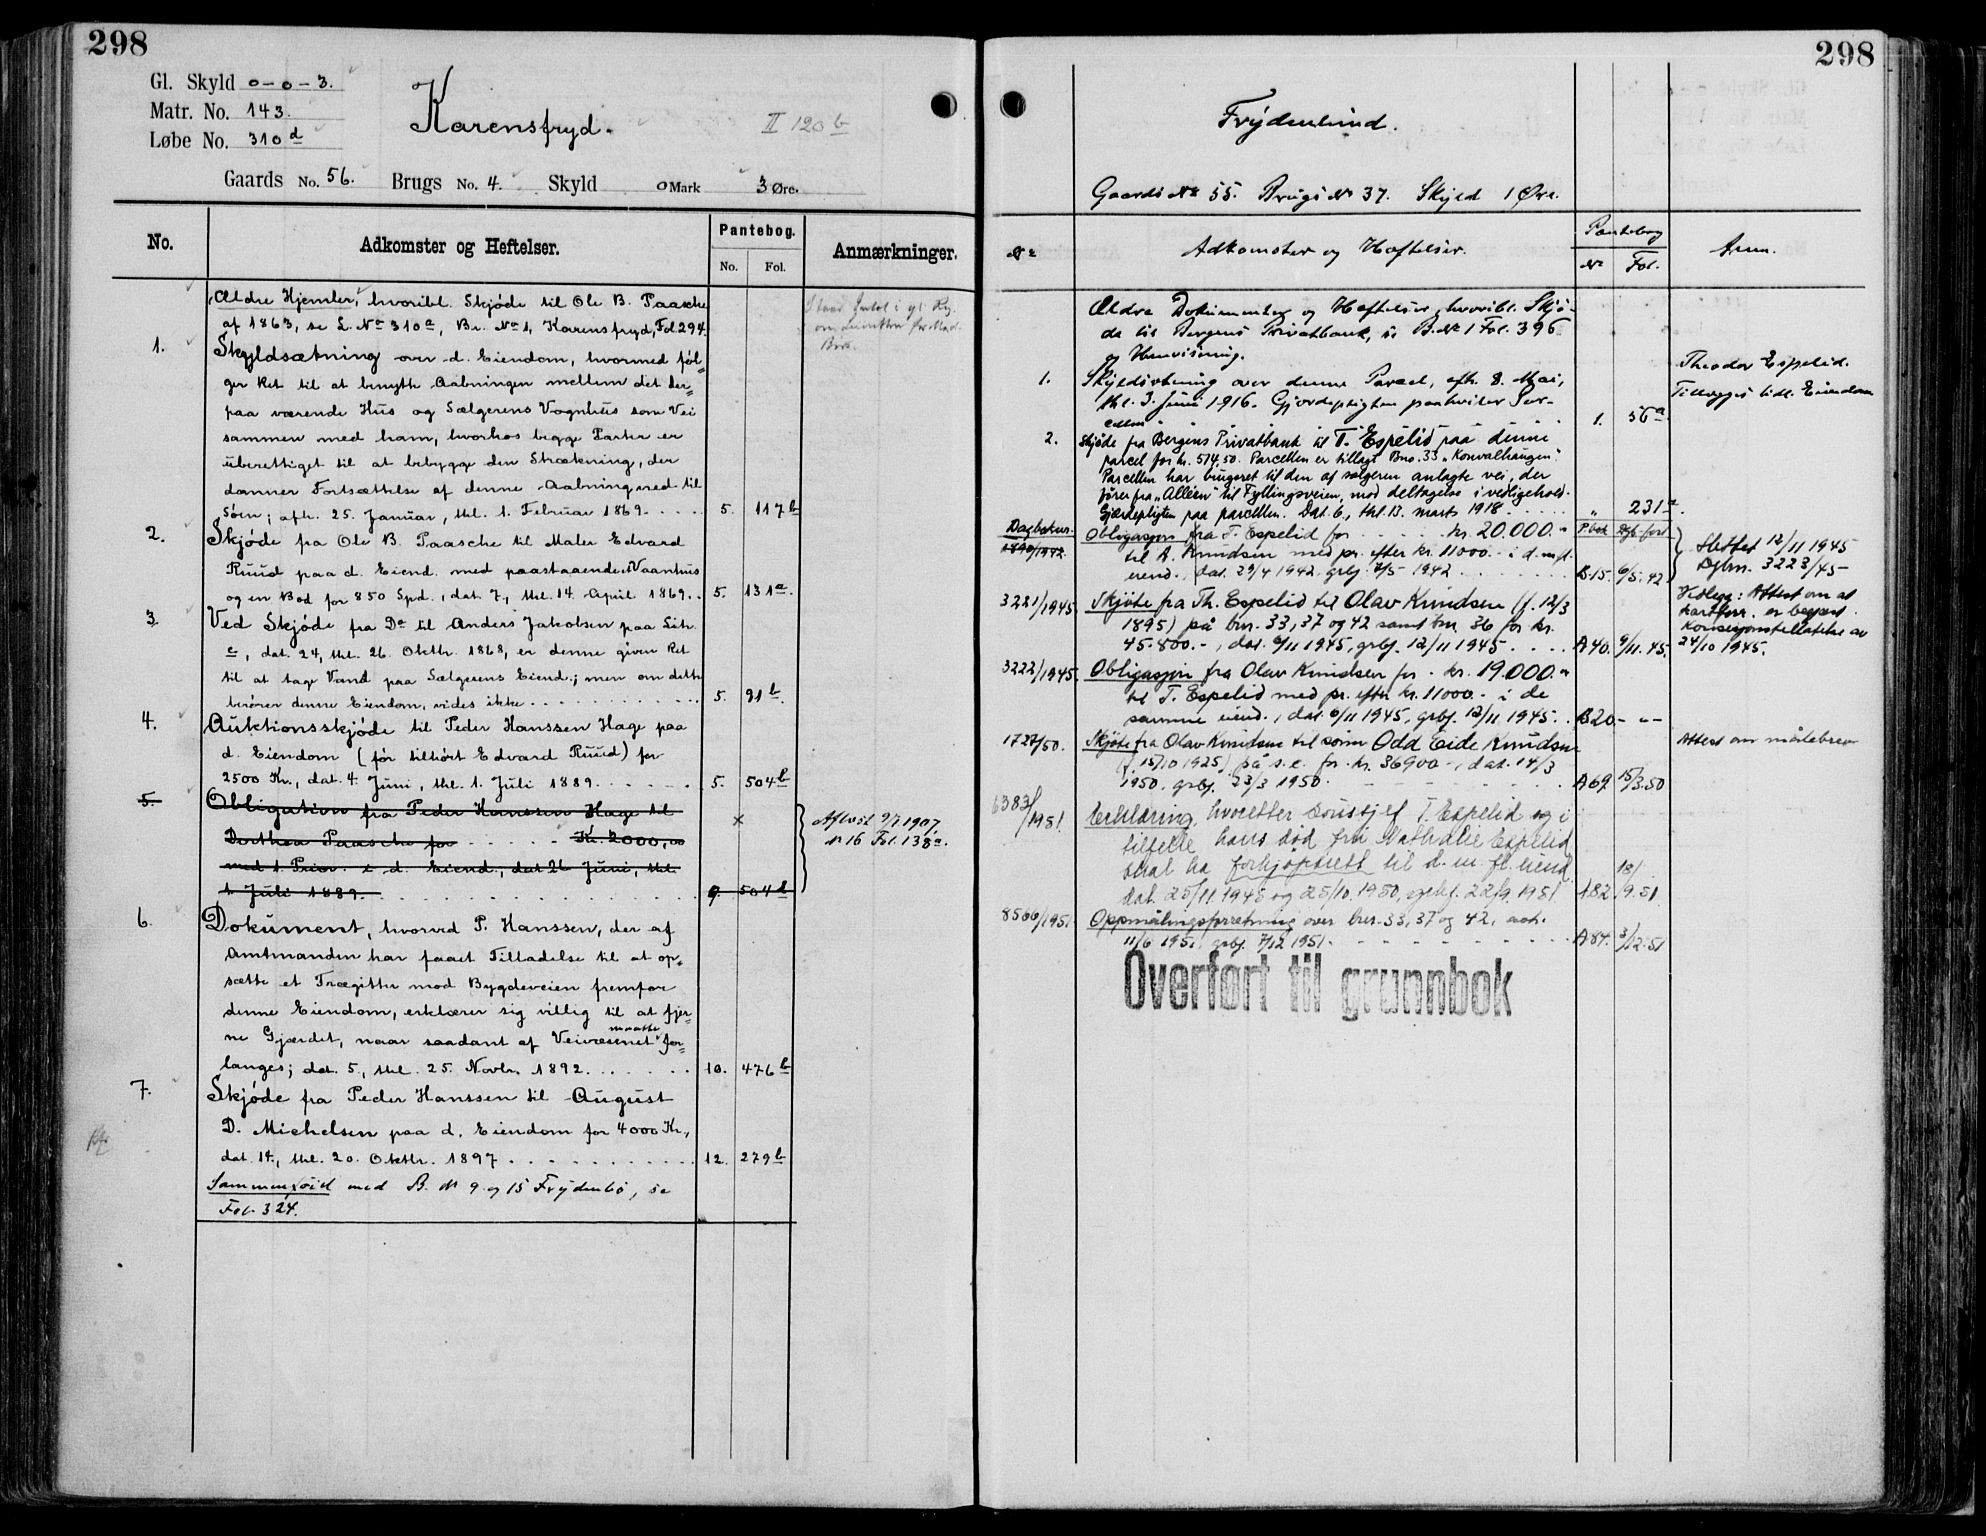 298
Gl. Skyld 0-0-3.
Matr. No. 143.
Løbe No. 310 d
Karensfryd.
II 120 b
Gaards No. 56. Brugs No. 4. Skyld 0 Mark 3 Øre.
No. Adkomster og Heftelser. Pantebog. No. Fol. Anmærkninger.
Ældre Hjemler, hvoribl. Skjøde til Ole B. Paasche
af 1863, se L. No 310 a, Br. No 1, Karensfryd, Fol 294.
1. Skyldsætning over d. Eiendom, hvormed føl-
ger Ret til at benytte Aabningen mellem det der-
paa værende Hus og Sælgerens Vognhus som Vei
sammen med ham, hvorhos begge Parter er
uberettiget til at bebygge den Strækning, der
danner Fortsættelse af denne Aabning ned til
Søen; afh. 25. Januar, thl. 1. Februar 1869 . . . . 5. 117 b
2. Skjøde fra Ole B. Paasche til Maler Edvard
Ruud paa d. Eiend. med paastaaende Vaanhus
og en Bod for 850 Spd., dat. 7., thl. 14. April 1869. . 5. 131 a.
3. Ved Skjøde fra Do til Anders Jakobsen paa Litr.
e, dat. 24, thl. 26. Oktbr. 1868, er denne given Ret
til at tage Vand paa Sælgerens Eiend.; men om dette
berører denne Eiendom, vides ikke . . . . . . . . . 5. 91 b.
4. Auktionsskjøde til Peder Hanssen Hage paa
d. Eiendom (før tilhørt Edvard Ruud) for
2500 Kr., dat. 4. Juni, thl. 1. Juli 1889. . . . . . 5. 504 b
5. Obligation fra Peder Hanssen Hage til
Dorthea Paasche for - - - - - Kr. 2000,00
med 1. Prior. i d. Eiend., dat 26 Juni, thl.
1. Juli 1889. . . . . . . . . . . . 9. 504 d
Aflæst 9/7 1907,
N 16 Fol. 138 a.
6. Dokument, hvorved P. Hanssen, der af
Amtmanden har faaet Tilladelse til at op-
sætte et Trægitter mod Bygdeveien fremfor
denne Eiendom, erklærer sig villig til at fjer-
ne Gjærdet, naar saadant af Veivæsenet maatte for-
langes; dat. 5., thl. 25. Novbr. 1892. . . . . . 10. 476 b
7. Skjøde fra Peder Hanssen til August
D. Michelsen paa d. Eiendom for 4000 Kr.,
dat. 14., thl. 20. Oktbr. 1897 . . . . . . . . . 12. 279 b
Sammenføiet med B. N 9 og 15 Frydenbø, se
Fol. 324.
298
Frydenlund.
Gaards No 55. Brugs No 37. Skyld 1 Øre.
No Adkomster og Heftelser. Pantebog No Fol. Anm.
Ældre Dokumenter og Heftelser, hvoribl. Skjø-
de til Bergens Privatbank, se B. No 1 Fol. 396
og Henvisning.
1. Skyldsætning over denne Parcel, afh. 8. Mai,
thl. 3. Juni 1916. Gjerdepligten paahviler Par-
cellen . . 1. 56 a
Theodor Espelid.
Tillægges tidl. Eiendom
2. Skjøde fra Bergens Privatbank til T. Espelid paa denne
parcel for kr. 574,50. Parcellen er tillagt Bno. 33 „Konvalhaugen".
Parcellen har brugsret til den af sælgeren anlagte vei, der
fører fra „Alléen" til Fyllingsveien, mod deltagelse i vedligehold.
Gjærdepligten paa parcellen. Dat. 6., thl. 13. marts 1918 . . . . . " 231 a.
Dagboknr. P.bok Dgb.ført
1890/1942. Obligasjon fra T. Espelid for . . . . . kr. 20.000.-
til A. Knudsen med pr. efter kr. 11000.- i d.m.fl.
eiend., dat. 29/4 1942, grbf. 7/5 1942 . . . . . . B.15. 6/5.42
Slettet 12/11 1945
Dgbnr. 3223/45
3221/1945. Skjøte fra Th. Espelid til Olav Knudsen (f. 12/3
1895) på bnr. 33, 37 og 42 samt bnr. 36 for kr.
45.800.-, dat. 6/11 1945, grbf. 12/11 1945 . . . . A40. 9/11.45.
Vedlegg: Attest om at
kartforr. er begjært.
Konsesjonstillatelse av
24/10 1945.
3222/1945. Obligasjon fra Olav Knudsen for . kr. 19.000.-
til T. Espelid med pr. efter kr. 11000.- i de
samme eiend., dat. 6/11 1945, grbf. 12/11 1945. . B20. - " -
1727/50. Skjøte fra Olav Knudsen til sønn Odd Eide Knudsen
(f. 15/10 1925) på s.e. for kr. 36900.-, dat. 14/3
1950, grbf. 23/3 1950 . . . . A69 15/3.50
Attest om målebrev
6383/1951. Erklæring, hvoretter Doristjef T. Espelid og i
tilfelle hans død fru Nathalie Espelid
skal ha forkjøpsrett til d.m.fl. eiend.
dat. 25/11 1945 og 25/10 1950, grbf. 22/9 1951. A82. 18/9.51
8500/1951. Oppmålingsforretning over bnr. 33, 37 og 42, avh.
11/6 1951, grbf. 7/12 1951. - - - - - - A84. 3/12.51
Overført til grunnbok